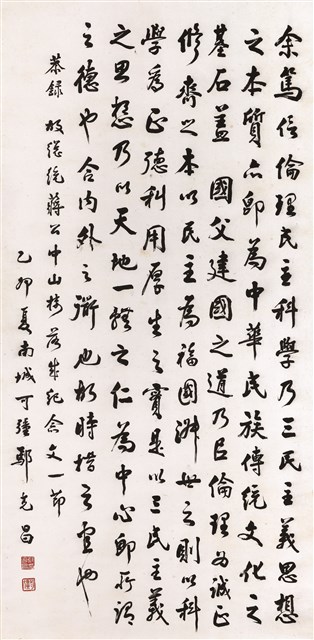 余篤信倫理民主科學乃三民主義思想
之本質亦即為中華民族傳統文化之
基石蓋 國父建國之道乃以倫理為誠正
修齊之本以民主為福國淑世之則以科
學為正德利用厚生之實是以三民主義
之思想乃以天地一體之仁為中心即所謂
之德也合內外之衜也故時措之宜也
恭錄 故總統蔣公中山樓落成紀念文一節
乙卯夏南城可鍾鄢克昌